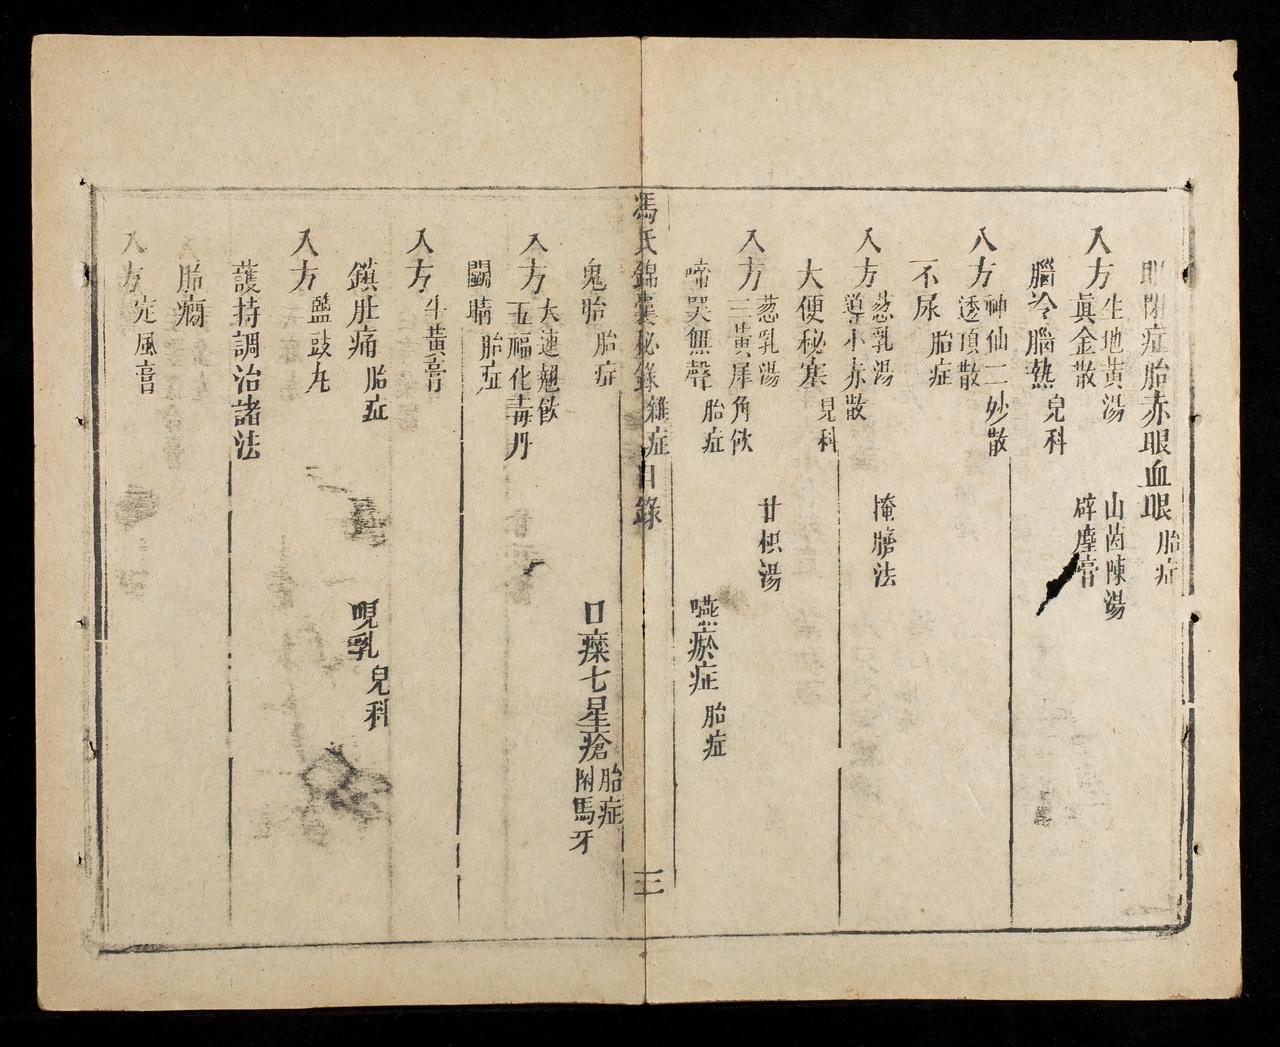 眼閉症胎赤眼血眼 胎症
入方 生地黃湯 山茵陳湯
眞金散 辟塵膏
腦冷腦熱 兒科
入方 神仙二妙散
透頂散
不尿 胎症
入方 葱乳湯 掩臍法
導小赤散
大便秘塞 兒科
入方 葱乳湯 甘枳湯
三黃犀角飲
啼哭無聲 胎症 嚥瘀症 胎症
馮氏錦囊秘錄雜症目錄 三
鬼胎 胎症 口瘡七星瘡 胎症
附馬牙
入方 大連翹飲
五福化毒丹
鬭睛 胎症
入方 牛黃膏
鎖肚痛 胎症 哯乳 兒科
入方 鹽豉丸
護持調治諸法
胎癇
入方 定風膏